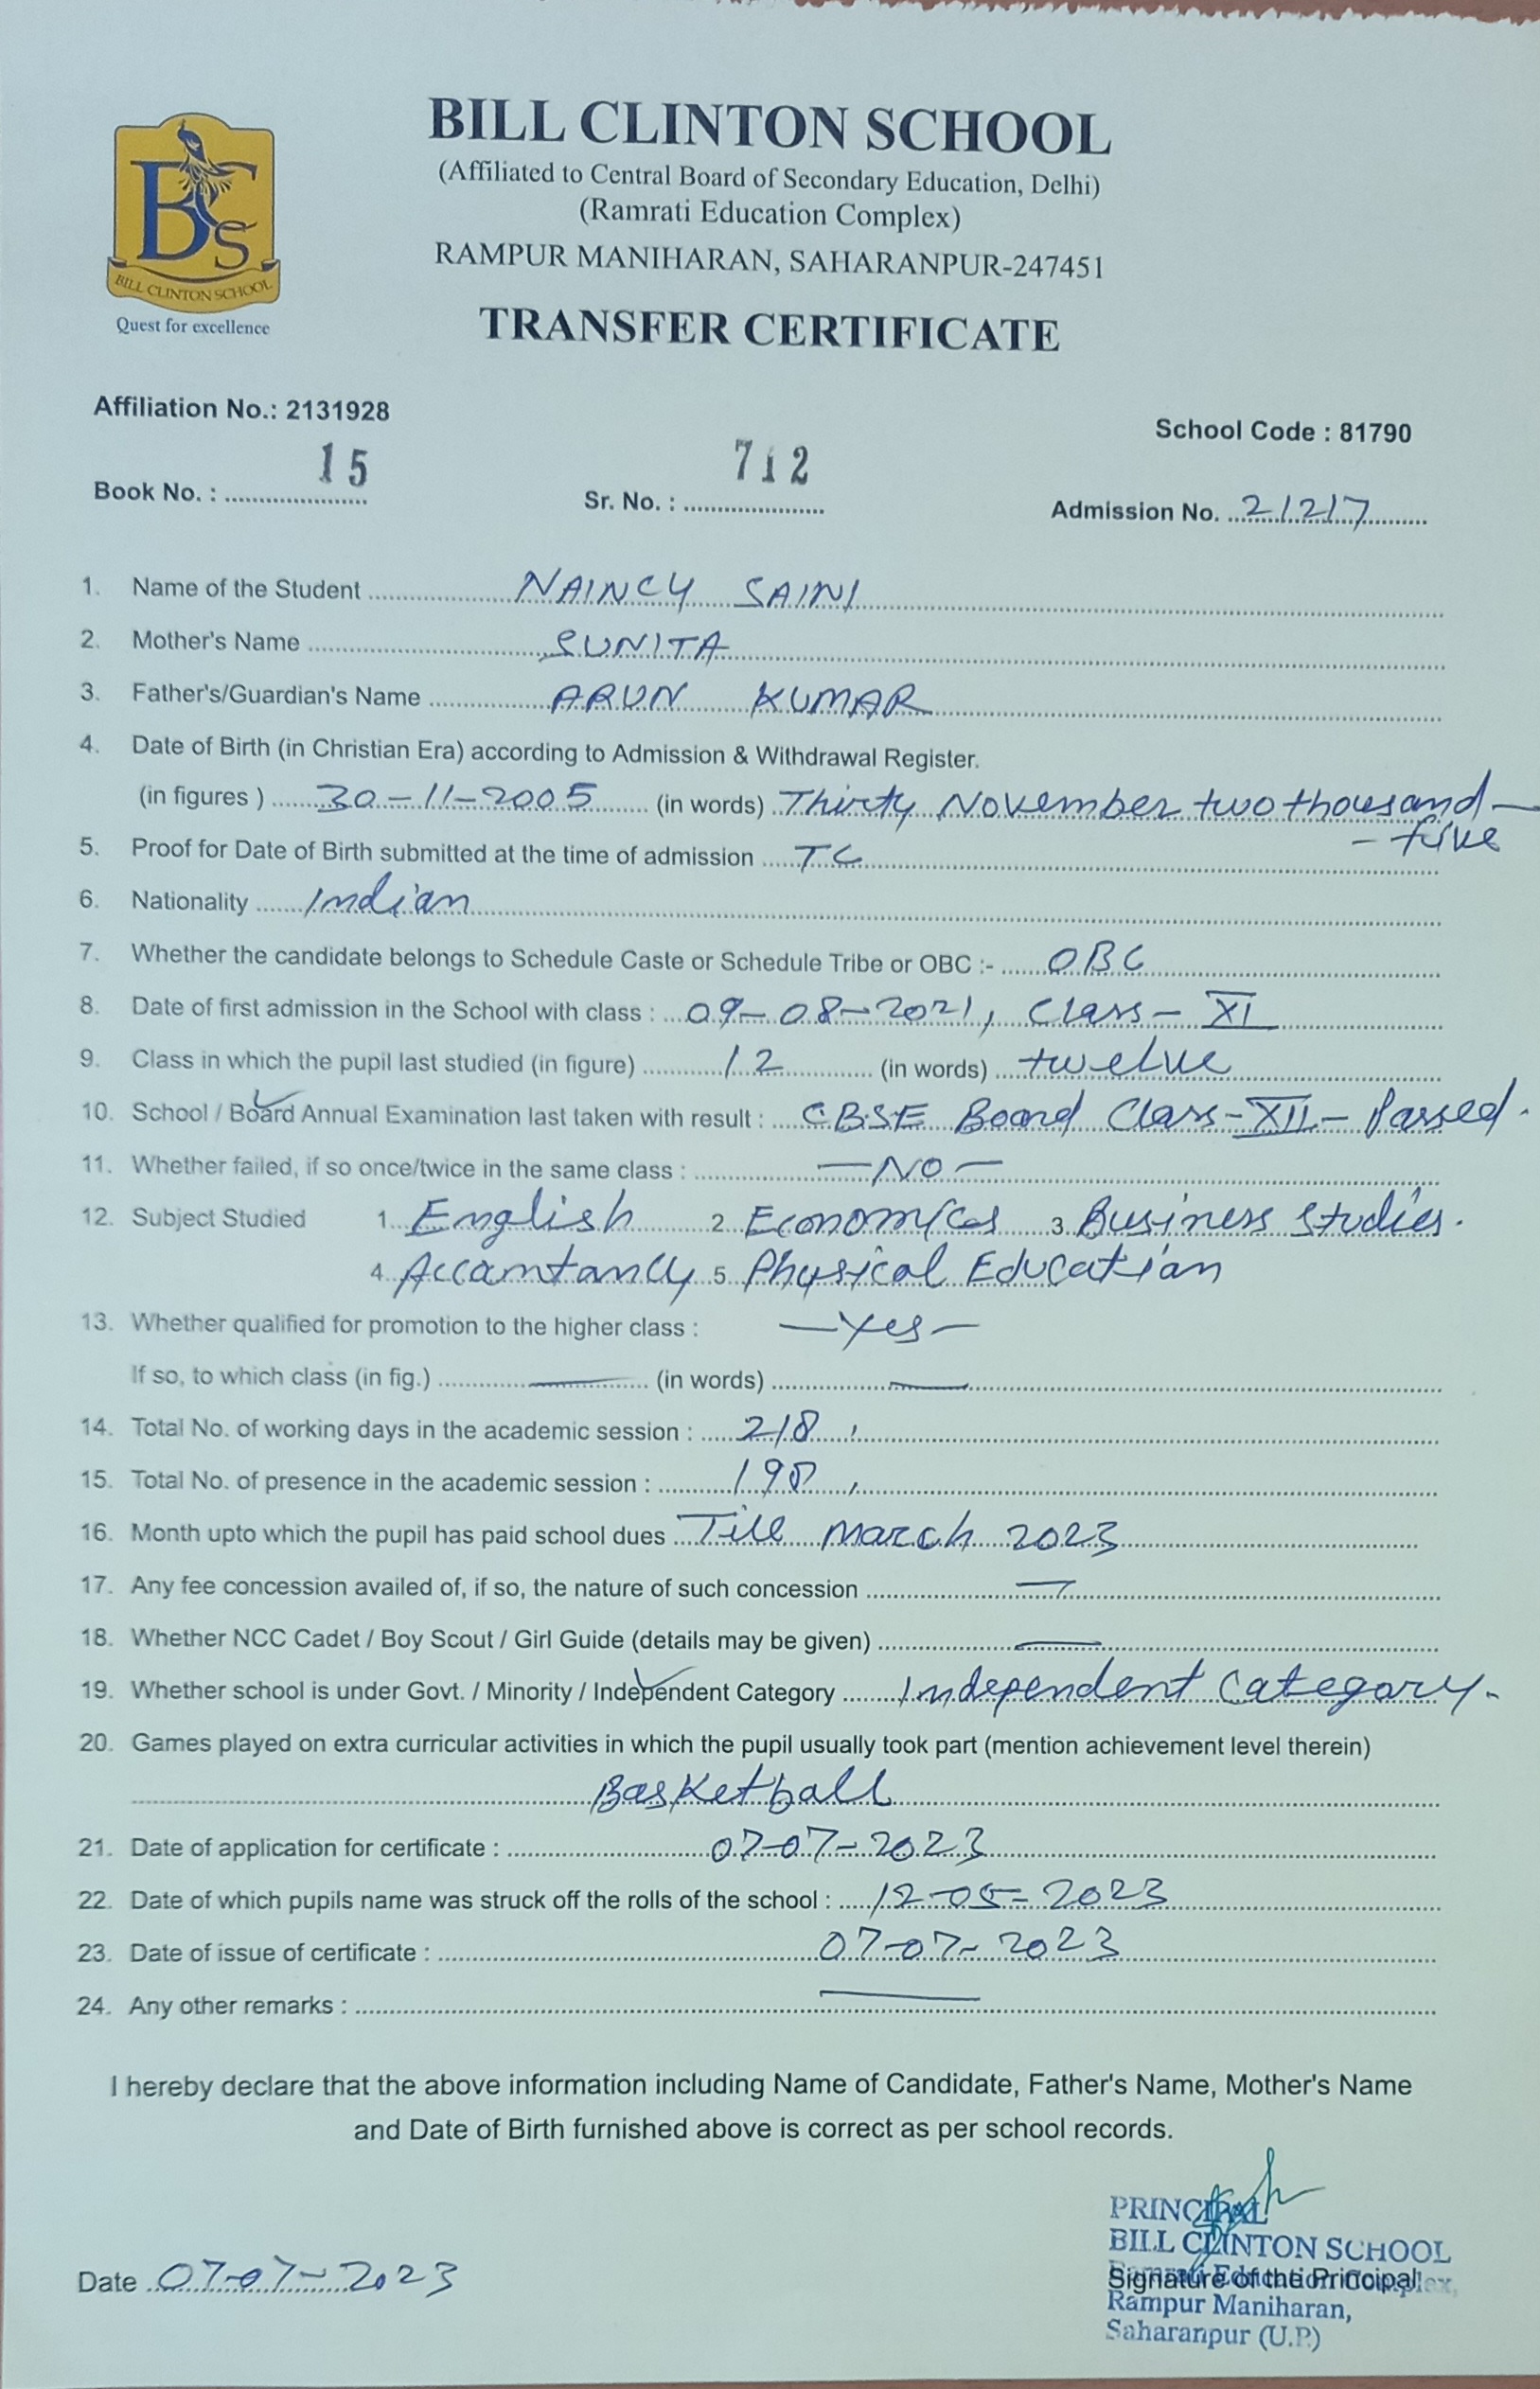 BILL CLINTON SCHOOL
(Affiliated to Central Board of Secondary Education, Delhi)
(Ramrati Education Complex)
RAMPUR MANIHARAN, SAHARANPUR-247451
BCS
BILL CLINTON SCHOOL
Quest for excellence
TRANSFER CERTIFICATE
Affiliation No.: 2131928
School Code : 81790
Book No. : 15 Sr. No. : 712 Admission No. 21217
1. Name of the Student NAINCY SAINI
2. Mother's Name SUNITA
3. Father's/Guardian's Name ARUN KUMAR
4. Date of Birth (in Christian Era) according to Admission & Withdrawal Register.
(in figures ) 30-11-2005 (in words) Thirty November two thousand -
- five
5. Proof for Date of Birth submitted at the time of admission TC
6. Nationality Indian
7. Whether the candidate belongs to Schedule Caste or Schedule Tribe or OBC :- OBC
8. Date of first admission in the School with class : 09-08-2021, Class- XI
9. Class in which the pupil last studied (in figure) 12 (in words) twelve
10. School / Board Annual Examination last taken with result : CBSE Board Class-XII- Passed.
11. Whether failed, if so once/twice in the same class : -NO-
12. Subject Studied 1. English 2. Economics 3. Business Studies.
4. Accountancy 5. Physical Education
13. Whether qualified for promotion to the higher class : -Yes-
If so, to which class (in fig.) — (in words) —
14. Total No. of working days in the academic session : 218
15. Total No. of presence in the academic session :
16. Month upto which the pupil has paid school dues Till March 2023
17. Any fee concession availed of, if so, the nature of such concession —
18. Whether NCC Cadet / Boy Scout / Girl Guide (details may be given) —
19. Whether school is under Govt. / Minority / Independent Category Independent Category.
20. Games played on extra curricular activities in which the pupil usually took part (mention achievement level therein)
Basketball
21. Date of application for certificate : 07-07-2023
22. Date of which pupils name was struck off the rolls of the school : 12-05-2023
23. Date of issue of certificate : 07-07-2023
24. Any other remarks : —
I hereby declare that the above information including Name of Candidate, Father's Name, Mother's Name
and Date of Birth furnished above is correct as per school records.
PRINCIPAL
BILL CLINTON SCHOOL
Date 07-07-2023
Signature of the Principal
Ramrati Education Complex,
Rampur Maniharan,
Saharanpur (U.P.)